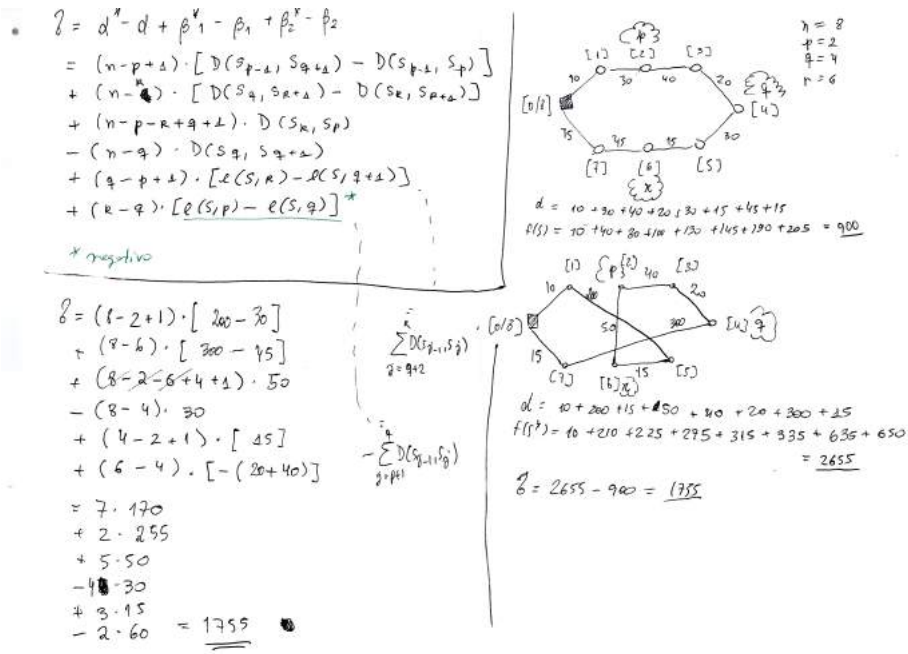 δ = d* - d + β*1 - β1 + β*2 - β2
= (n-p+1) · [D(Sp-1, Sq+1) - D(Sp-1, Sp)]
+ (n-k) · [D(Sq, Sk+1) - D(Sk, Sk+1)]
+ (n-p-k+q+1) · D(Sk, Sp)
- (n-q) · D(Sq, Sq+1)
+ (q-p+1) · [l(S,k) - l(S,q+1)]
+ (k-q) · [l(S,p) - l(S,q)] *
* negativo
δ = (8-2+1) · [200-30]
+ (8-6) · [300-45]
+ (8-2-6+4+1) · 50
- (8-4) · 30
+ (4-2+1) · [15]
+ (6-4) · [-(20+40)]
= 7 · 170
+ 2 · 255
+ 5 · 50
-4 · 30
+ 3 · 15
- 2 · 60 = 1755
=
k
∑ D(Sj-1, Sj)
j=q+2
=
q
-∑ D(Sj-1, Sj)
j=p+1
n = 8
p = 2
q = 4
r = 6
{p}
[1] [2] [3]
10 30 40 20
{q}
[0/8] [4]
15 45 15 30
[7] [6] [5]
{r}
d = 10 + 30 + 40 + 20 + 30 + 15 + 45 + 15
f(S) = 10 + 40 + 80 + 100 + 130 + 145 + 190 + 205 = 900
[1] {p} [2] 40 [3]
10 200 20
[0/8] 50 300 [4] {q}
15
[7] [6] {r} 15 [5]
d = 10 + 200 + 15 + 50 + 40 + 20 + 300 + 15
f(S*) = 10 + 210 + 225 + 275 + 315 + 335 + 635 + 650
= 2655
δ = 2655 - 900 = 1755